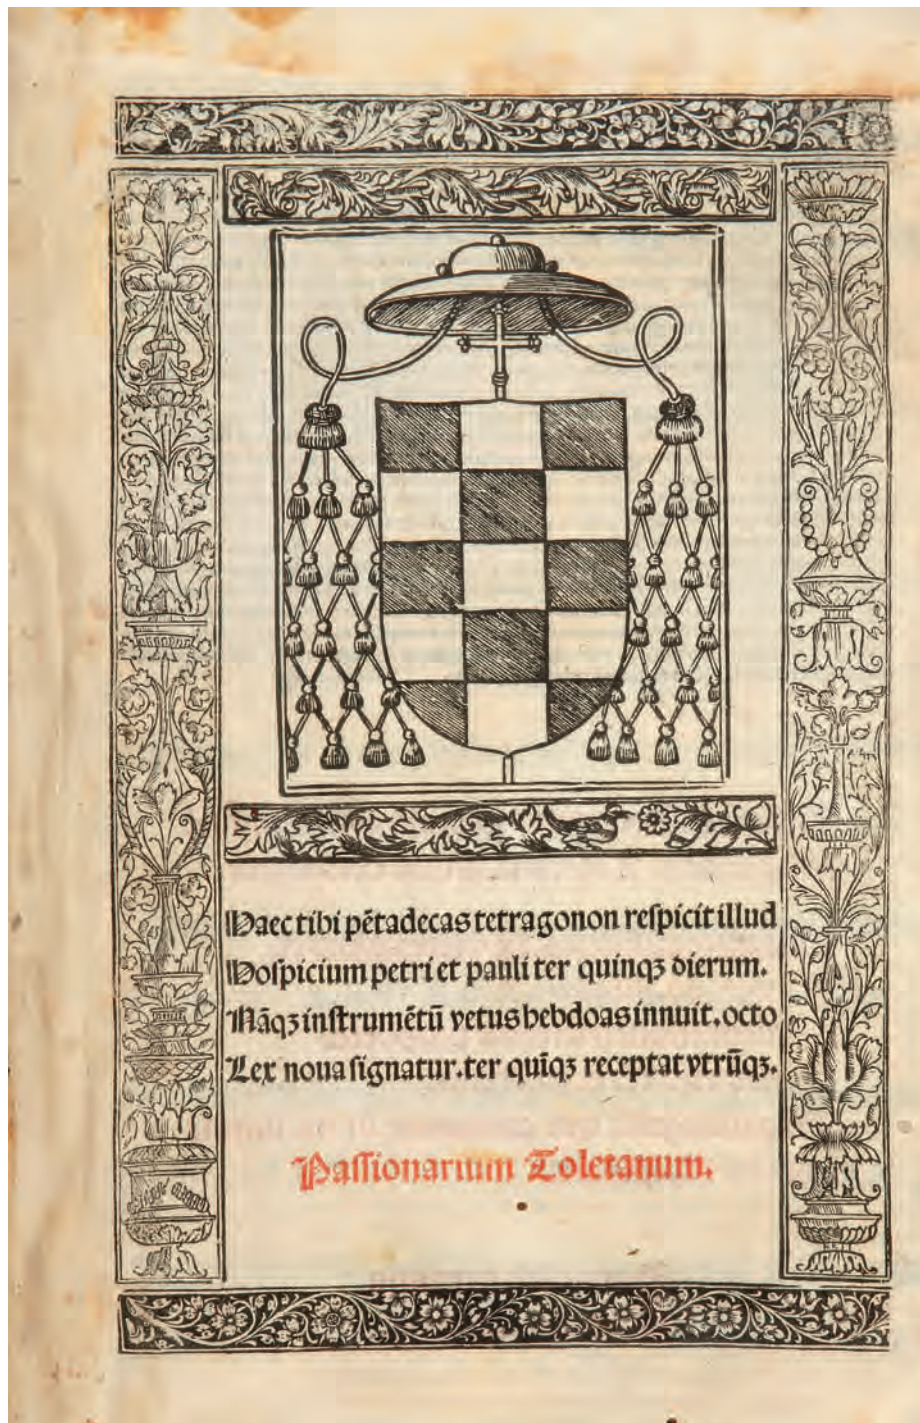 Haec tibi pētadecas tetragonon respicit illud
Hospicium petri et pauli ter quinqꝫ dierum.
Nāqꝫ instrumētū vetus hebdoas innuit, octo
Lex noua signatur. ter quīqꝫ receptat vtrūqꝫ.
Passionarium Toletanum.